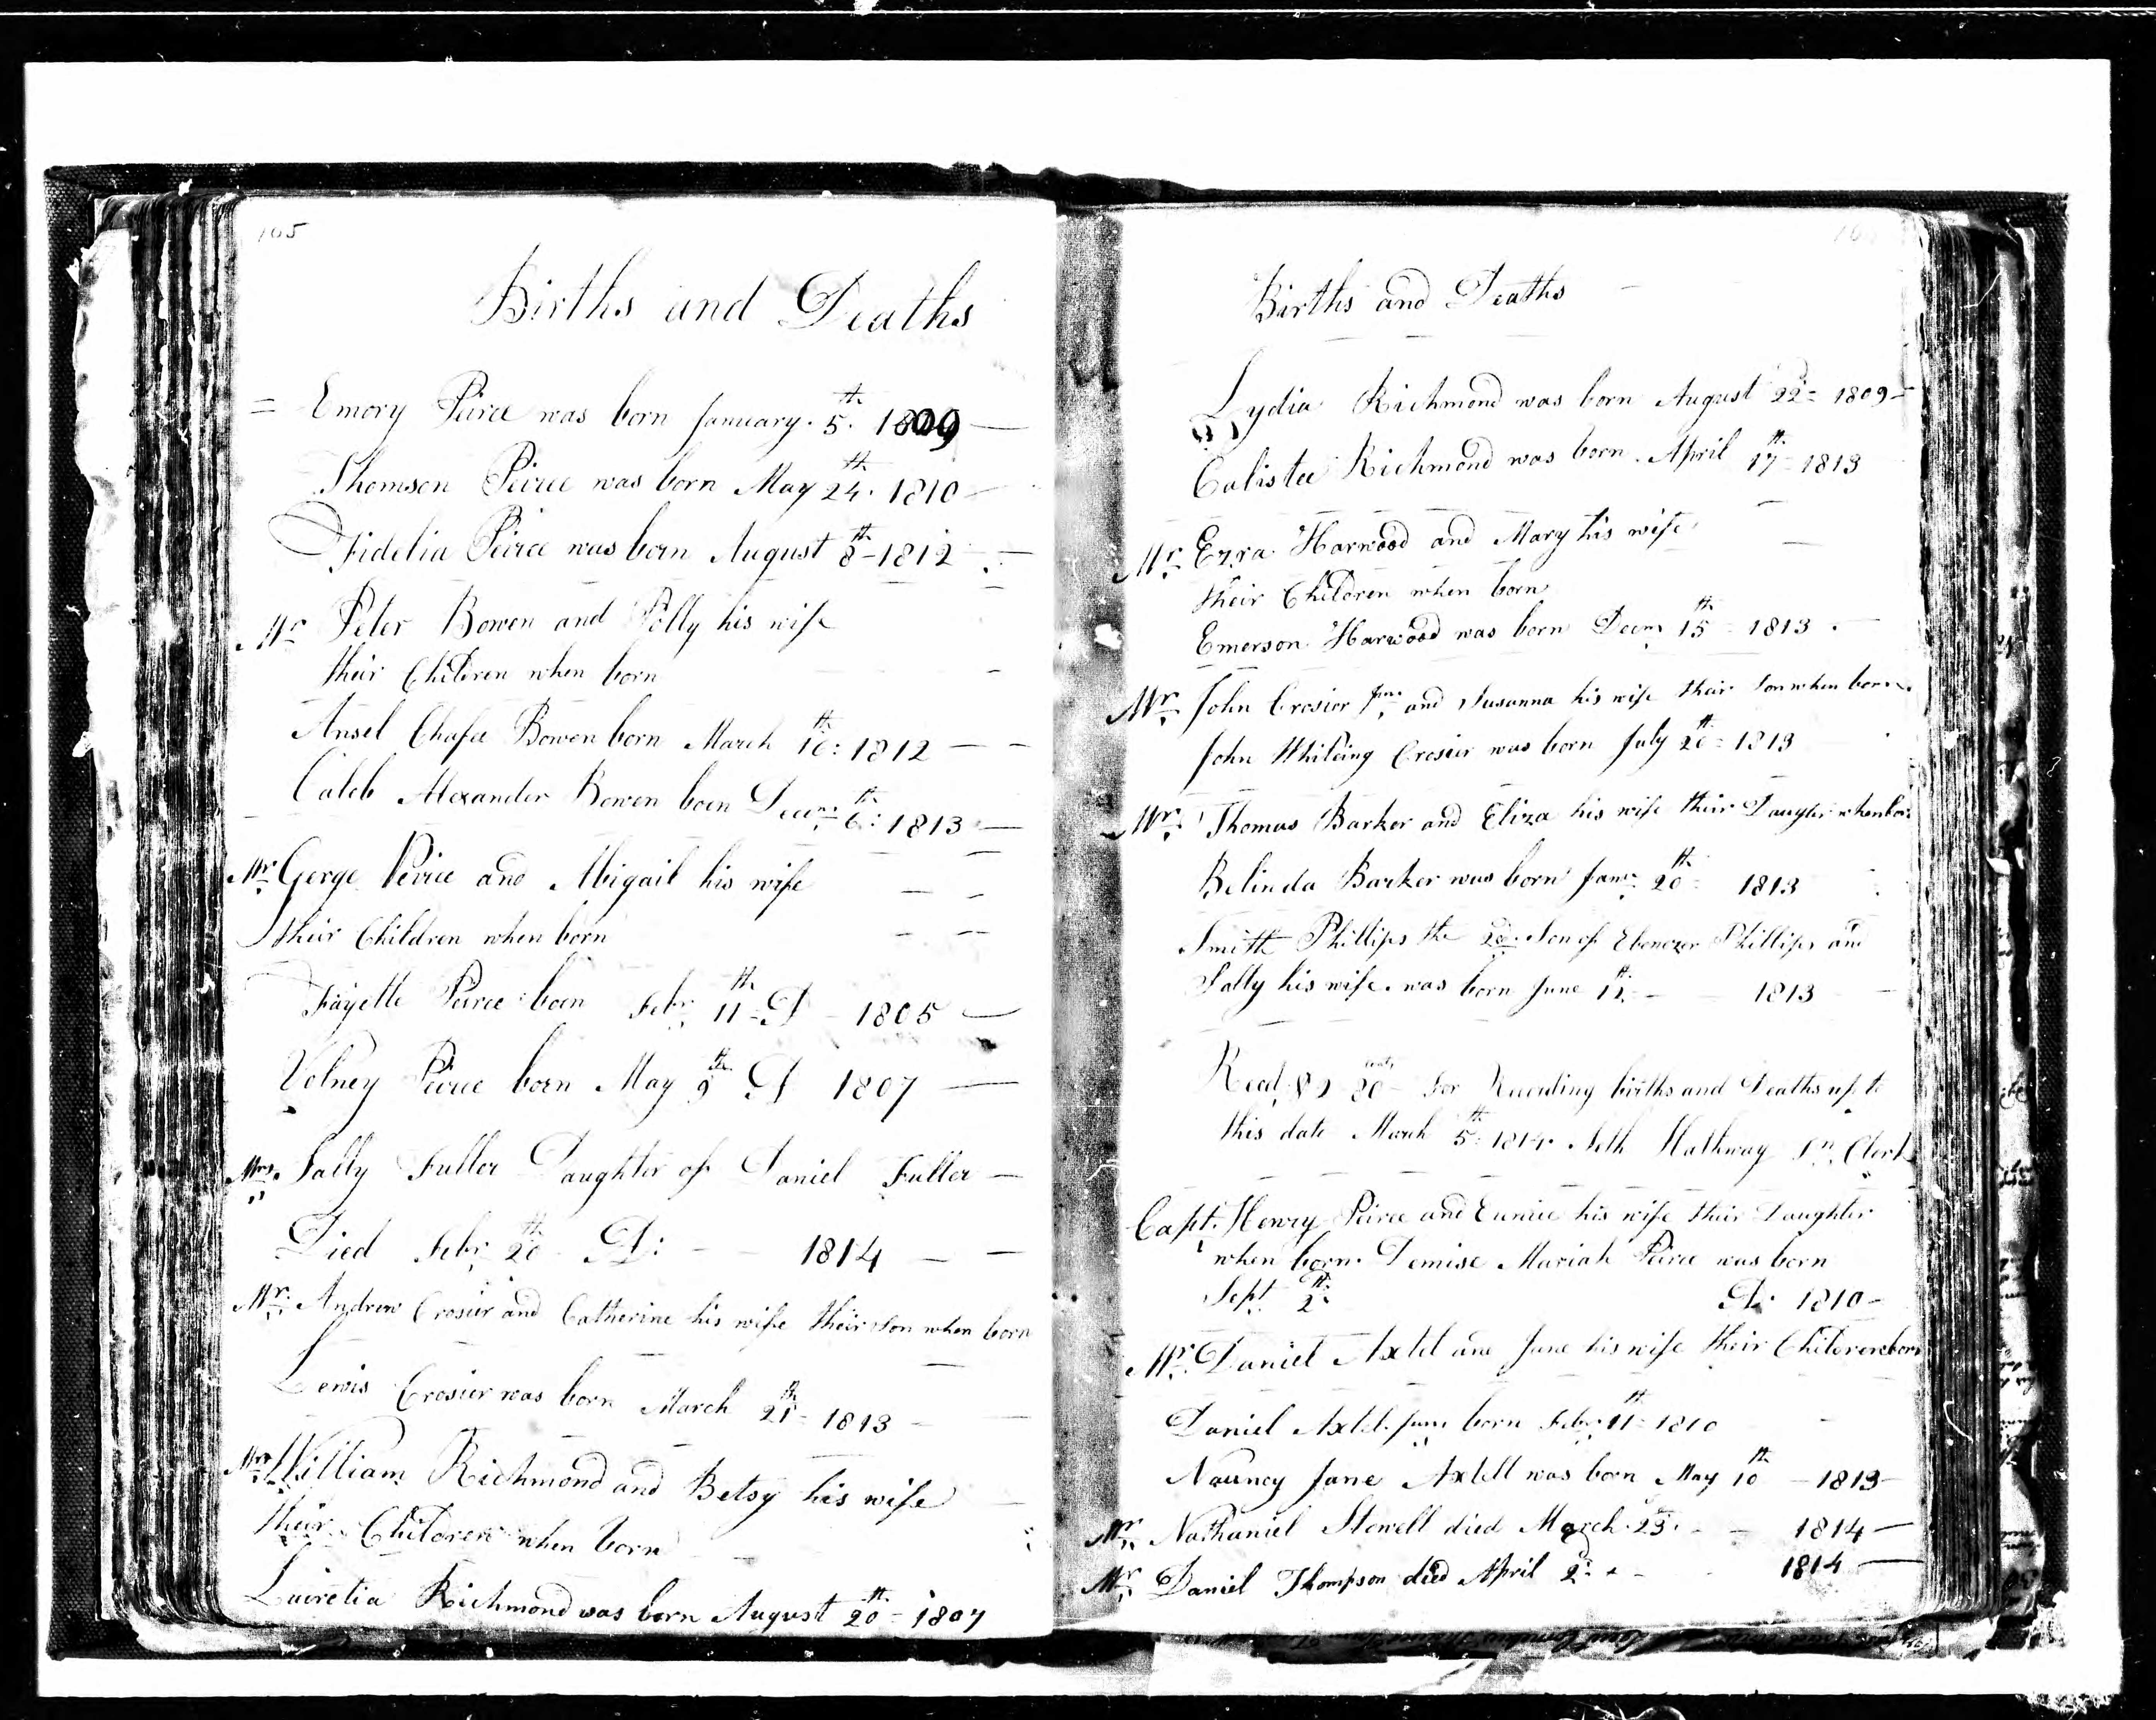 165
Births and Deaths
= Emory Peirce was born January. 5th. 1809 —
Thomson Peirce was born May 24th. 1810 —
Fidelia Peirce was born August 8th - 1812 —
Mr Peter Bowen and Polly his wife
their Children when born
Ansel Chafee Bowen born March 16th: 1812 —
Caleb Alexander Bowen born Decm 6th: 1813 —
Mr Gerge Peirce and Abigail his wife
their Children when born
Fayette Peirce born Febr 11th D 1805 —
Volney Peirce born May 9th D 1807 —
Mrs. Sally Fuller Daughter of Daniel Fuller —
Died Febr 20th D: 1814 —
Mr. Andrew Crosier and Catherine his wife their son when born
Lewis Crosier was born March 21th - 1813 —
Mr William Richmond and Betsy his wife
their Children when born
Lucretia Richmond was born August 20th - 1807
Births and Deaths
Lydia Richmond was born August 22d = 1809 -
Calistee Richmond was born April 17th - 1813
Mr Ezra Harwood and Mary his wife
their Children when born
Emerson Harwood was born Decm 15th - 1813.
Mr John Crosier Junr and Susanna his wife their son when born
John Whiteing Crosier was born July 20th = 1813
Mr Thomas Barker and Eliza his wife their Daughter when bor
Belinda Barker was born Janr 20th - 1813
Smith Phillips the 2d. Son of Ebenezer Phillips and
Sally his wife. was born June 11th - 1813
Recd 80 cents for Recording births and Deaths up to
this date March 5th: 1814. Seth Hathway Tn Clerk
Capt. Henry Peirce and Eunice his wife their Daughter
when born. Demise Mariah Peirce was born
Sept 2th D. 1810 -
Mr Daniel Axtel and Jane his wife their Children born
Daniel Axtel. Junr born Febr 11th = 1810
Nauncy Jane Axtell was born May 10th - 1813 -
Mr Nathaniel Stowell died March 23d. 1814 —
Mr Daniel Thompson died April 2d 1814 —